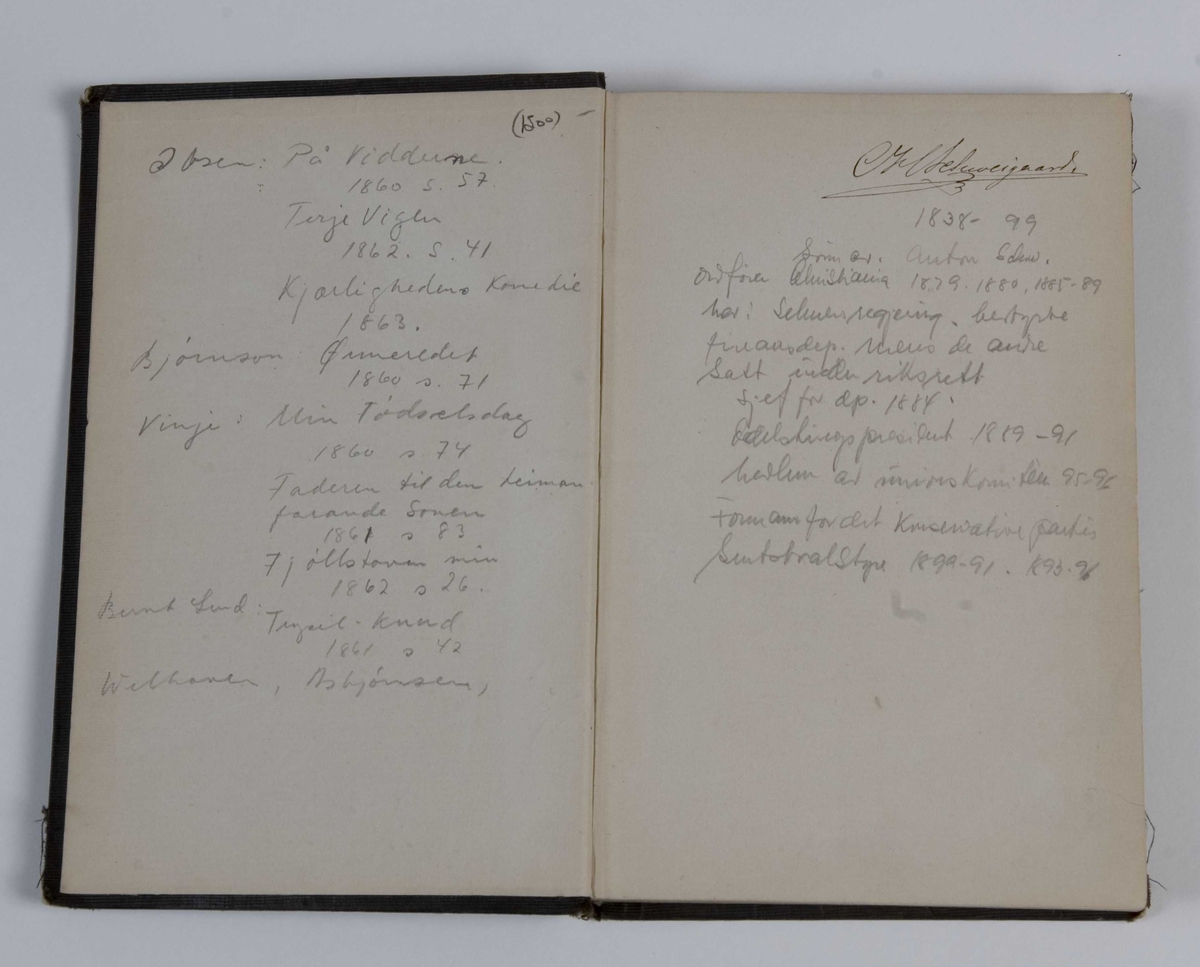 (1500)
Ibsen: På Vidderne.
1860 s. 57.
Terje Vigen
1862. S. 41
Kjærlighedens Komedie
1863.
Bjørnson: Ørneredet
1860 s. 71
Vinje: Min Fødselsdag
1860 s. 74
Faderen til den heiman-
farande Sonen
1861 s 83
Fjøllstoven min
1862 s 26.
Bernt Lund:
Trysil-Knud
1861 s 42
Welhaven, Asbjørnsen,
Schweigaard.
1838-99
Sønn av. Anton Schw.
Ordfører Christiania 1879. 1880, 1885-89
regjering. bestyrte
finansdep. mens de andre
Satt under riksrett
sjef for dep. 1884.
Odelstingspresident 1889-91
medlem av unionskomiteen 95-96
Formann for det Konservative partis
1899-91. 1893-96